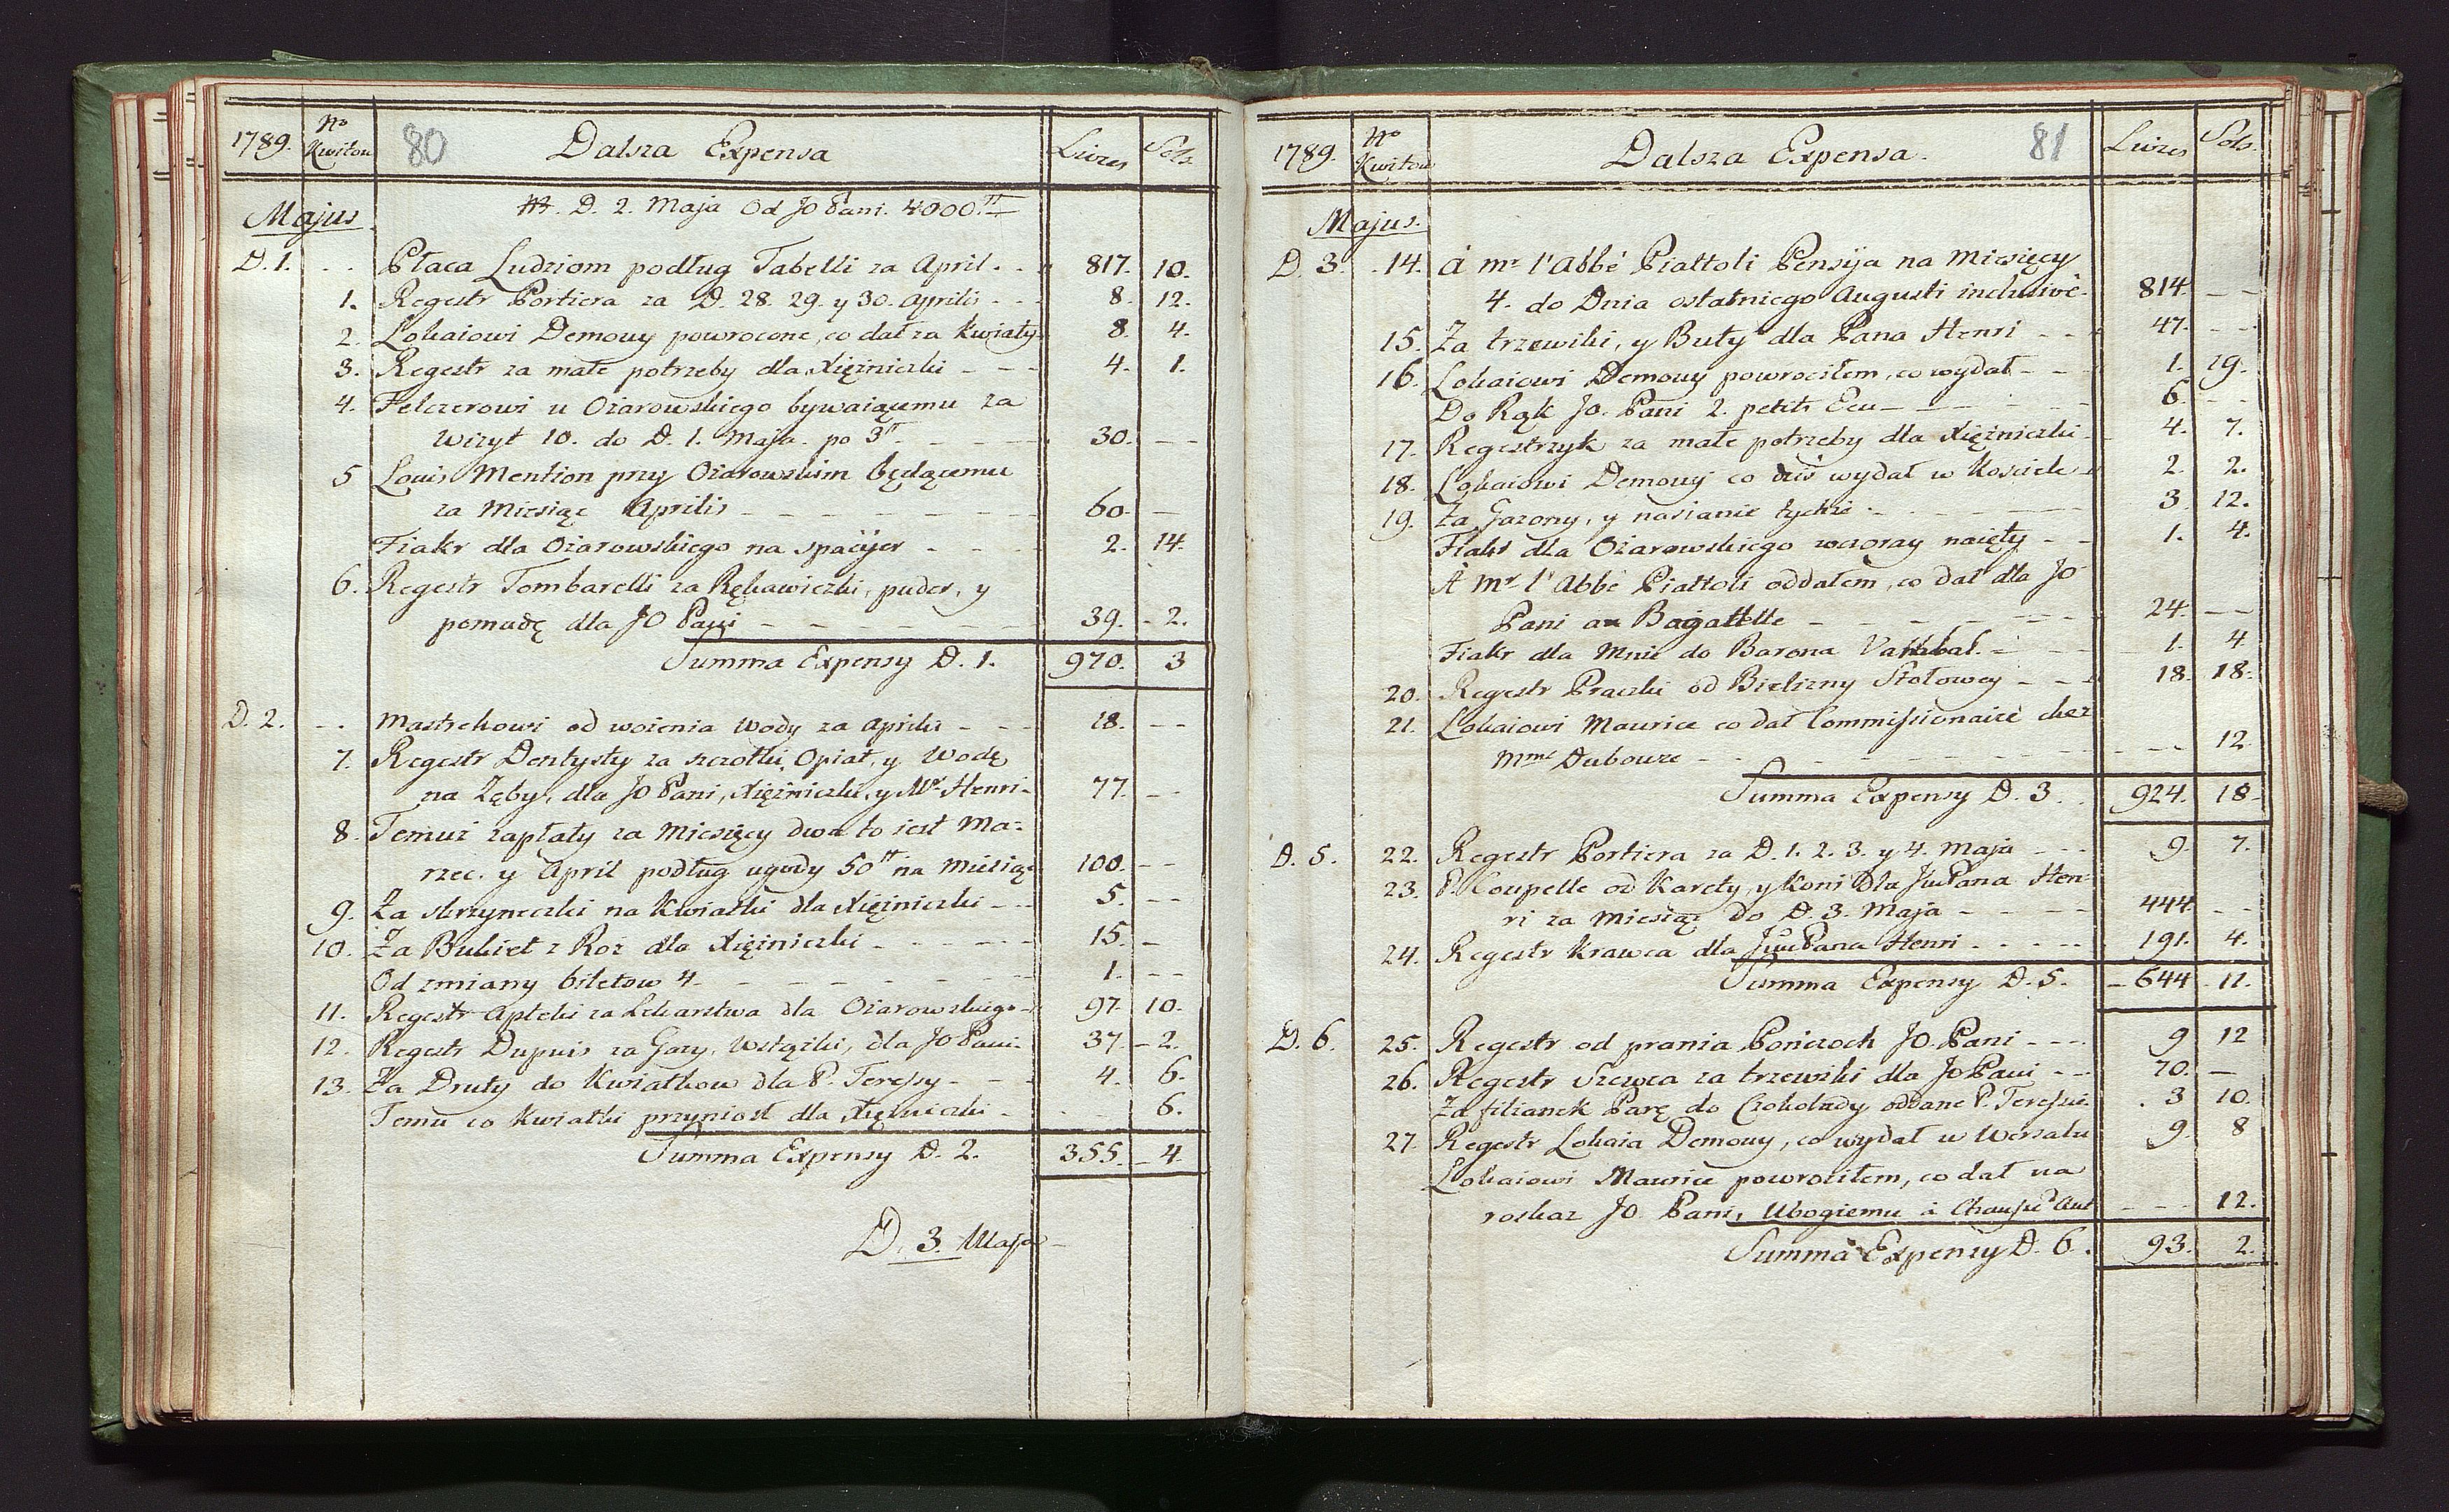 1789. No Kwitow 80 Dalsza Expensa Livres Sols
Majus D. 2. Maja Od JO Pani. 4000.tt
D. 1. Płaca Ludziom podług Tabelli za April. 817. 10.
1. Regestr Portiera za D. 28. 29. y 30. Aprilis 8. 12.
2. Lokaiowi Demouy powrocone, co dał za Kwiaty 8. 4.
3. Regestr za małe potrzeby dla Xiężniczki 4. 1.
4. Felczerowi u Ożarowskiego bywaiącemu za
wizyt 10. do D. 1. Maja. po 3tt 30. --
5 Louis Mention przy Ożarowskim będącemu
za Miesiąc Aprilis 60. -
Fiakr dla Ożarowskiego na spacyer 2. 14.
6. Regestr Tombarelli za Rękawiczki, puder, y
pomadę dla JO Pani 39. 2.
Summa Expensy D. 1. 970. 3
D. 2. Masztelowi od wożenia Wody za Aprilis 18. --
7. Regestr Dentysty za szczotki, Opiat, y Wodę
na Zęby, dla JO Pani, Xiężniczki, y Mr Henri 77. --
8. Temuż zapłaty za Miesięcy dwa to iest Ma-
rzec. y April podług ugody 50tt na Miesiąc 100. --
9. Za skrzyneczki na Kwiatki dla Xiężniczki 5. --
10. Za Bukiet z Roż dla Xiężniczki 15. -
Od zmiany biletow 4 1. --
11. Regestr Apteki za Lekarstwa dla Ożarowskiego 97. 10.
12. Regestr Dupuis za Gazy, Wstążki, dla JO Pani. 37. 2.
13. Za Druty do Kwiatkow dla P. Teressy 4. 6.
Temu co Kwiatki przyniosł dla Xiężniczki 6.
Summa Expensy D. 2. 355. 4.
D. 3. Maja
1789. No Kwitow Dalsza Expensa. 81 Livres Sols.
Majus.
D. 3. 14. à mr l'Abbé Piattoli Pensyja na Miesięcy
4. do Dnia ostatniego Augusti inclusivè 814. --
15. Za trzewiki, y Buty dla Pana Henri 47. --
16. Lokaiowi Demouy powrociłem, co wydał 1. 19.
Do Rąk JO. Pani 2. petits Ecu 6. --
17. Regestrzyk za małe potrzeby dla Xiężniczki 4. 7.
18. Lokaiowi Demouy co dziś wydał w Kosciele 2. 2.
19. Za Gazony, y nasianie tychże 3. 12.
Fiakr dla Ożarowskiego wczoray naięty 1. 4.
À mr l'Abbé Piattoli oddałem, co dał dla JO
Pani au Bagattelle 24. --
Fiakr dla Mnie do Barona 1. 4
20. Regestr Praczki od Bielizny Stołowey 18. 18.
21. Lokaiowi Maurice co dał Commissionaire chez
Mme Dubourc 12.
Summa Expensy D. 3. 924. 18.
D. 5. 22. Regestr Portiera za D. 1. 2. 3. y 4. Maja 9. 7.
23. P. Coupelle od Karety, y Koni dla JmPana Hen-
ri za Miesiąc do D. 3. Maja 444. --
24. Regestr Krawca dla JmPana Henri 191. 4.
Summa Expensy D. 5. 644 11.
D. 6. 25. Regestr od prania Pończoch JO. Pani 9 12
26. Regestr Szewca za trzewiki dla JO Pani 70. -
Za filianek Parę do Czokolady oddane P. Teressie. 3 10.
27. Regestr Lokaia Demouy, co wydał w Wersalu 9. 8
Lokaiowi Maurice powrociłem, co dał na
roskaz JO. Pani, Ubogiemu à Chaussé d'Ant 12.
Summa Expensy D. 6. 93. 2.